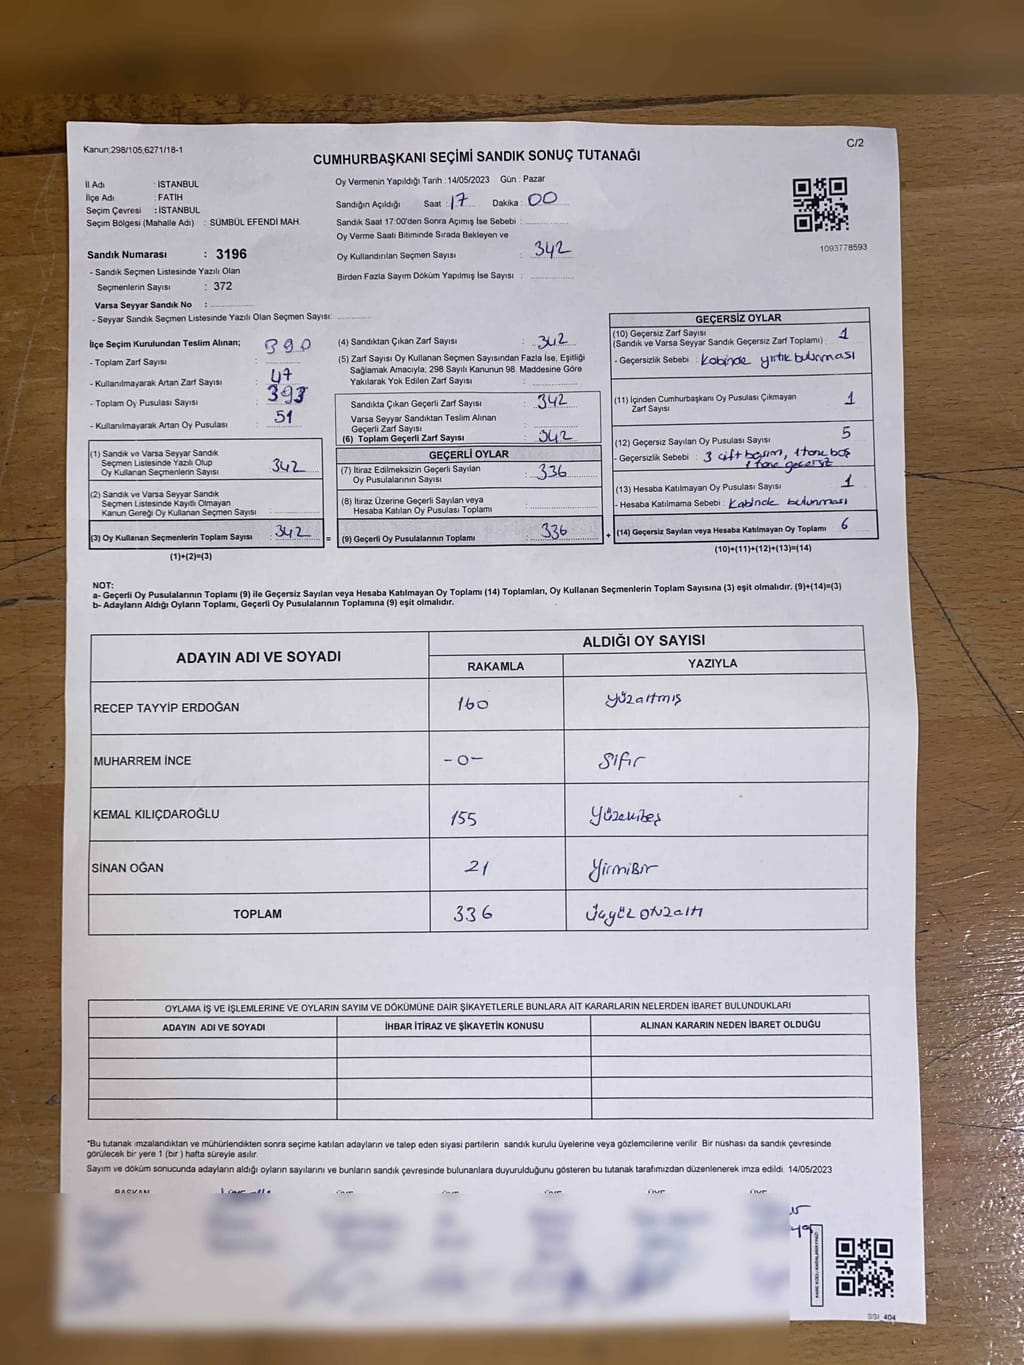 Kanun:298/105;6271/18-1
C/2
CUMHURBAŞKANI SEÇİMİ SANDIK SONUÇ TUTANAĞI
İl Adı : İSTANBUL
İlçe Adı : FATİH
Seçim Çevresi : İSTANBUL
Seçim Bölgesi (Mahalle Adı) : SÜMBÜL EFENDİ MAH.
Sandık Numarası : 3196
- Sandık Seçmen Listesinde Yazılı Olan
Seçmenlerin Sayısı : 372
Varsa Seyyar Sandık No :
- Seyyar Sandık Seçmen Listesinde Yazılı Olan Seçmen Sayısı:
Oy Vermenin Yapıldığı Tarih : 14/05/2023 Gün : Pazar
Sandığın Açıldığı Saat : 17 Dakika : 00
Sandık Saat 17:00'den Sonra Açımış İse Sebebi :
Oy Verme Saati Bitiminde Sırada Bekleyen ve
Oy Kullandırılan Seçmen Sayısı : 342
Birden Fazla Sayım Döküm Yapılmış İse Sayısı :
1093778593
İlçe Seçim Kurulundan Teslim Alınan;
- Toplam Zarf Sayısı : 390
- Kullanılmayarak Artan Zarf Sayısı : 47
- Toplam Oy Pusulası Sayısı : 393
- Kullanılmayarak Artan Oy Pusulası : 51
(1) Sandık ve Varsa Seyyar Sandık
Seçmen Listesinde Yazılı Olup
Oy Kullanan Seçmenlerin Sayısı : 342
(2) Sandık ve Varsa Seyyar Sandık
Seçmen Listesinde Kayıtlı Olmayan
Kanun Gereği Oy Kullanan Seçmen Sayısı :
(3) Oy Kullanan Seçmenlerin Toplam Sayısı : 342
(1)+(2)=(3)
(4) Sandıktan Çıkan Zarf Sayısı : 342
(5) Zarf Sayısı Oy Kullanan Seçmen Sayısından Fazla İse, Eşitliği
Sağlamak Amacıyla, 298 Sayılı Kanunun 98. Maddesine Göre
Yakılarak Yok Edilen Zarf Sayısı :
Sandıkta Çıkan Geçerli Zarf Sayısı : 342
Varsa Seyyar Sandıktan Teslim Alınan
Geçerli Zarf Sayısı :
(6) Toplam Geçerli Zarf Sayısı : 342
GEÇERLİ OYLAR
(7) İtiraz Edilmeksizin Geçerli Sayılan
Oy Pusulalarının Sayısı : 336
(8) İtiraz Üzerine Geçerli Sayılan veya
Hesaba Katılan Oy Pusulası Toplamı :
= (9) Geçerli Oy Pusulalarının Toplamı : 336 +
GEÇERSİZ OYLAR
(10) Geçersiz Zarf Sayısı 1
(Sandık ve Varsa Seyyar Sandık Geçersiz Zarf Toplamı) :
- Geçersizlik Sebebi : Kabinde yırtık bulunması
(11) İçinden Cumhurbaşkanı Oy Pusulası Çıkmayan 1
Zarf Sayısı
(12) Geçersiz Sayılan Oy Pusulası Sayısı : 5
- Geçersizlik Sebebi : 3 çift basım, 1 tane boş
1 tane geçersiz
(13) Hesaba Katılmayan Oy Pusulası Sayısı : 1
- Hesaba Katılmama Sebebi : Kabinde bulunması
(14) Geçersiz Sayılan veya Hesaba Katılmayan Oy Toplamı : 6
(10)+(11)+(12)+(13)=(14)
NOT:
a- Geçerli Oy Pusulalarının Toplamı (9) ile Geçersiz Sayılan veya Hesaba Katılmayan Oy Toplamı (14) Toplamları, Oy Kullanan Seçmenlerin Toplam Sayısına (3) eşit olmalıdır. (9)+(14)=(3)
b- Adayların Aldığı Oyların Toplamı, Geçerli Oy Pusulalarının Toplamına (9) eşit olmalıdır.
ADAYIN ADI VE SOYADI
ALDIĞI OY SAYISI
RAKAMLA YAZIYLA
RECEP TAYYİP ERDOĞAN 160 yüzaltmış
MUHARREM İNCE -0- Sıfır
KEMAL KILIÇDAROĞLU 155
SİNAN OĞAN 21 YirmiBir
TOPLAM 336
OYLAMA İŞ VE İŞLEMLERİNE VE OYLARIN SAYIM VE DÖKÜMÜNE DAİR ŞİKAYETLERLE BUNLARA AİT KARARLARIN NELERDEN İBARET BULUNDUKLARI
ADAYIN ADI VE SOYADI İHBAR İTİRAZ VE ŞİKAYETİN KONUSU ALINAN KARARIN NEDEN İBARET OLDUĞU
*Bu tutanak imzalandıktan ve mühürlendikten sonra seçime katılan adayların ve talep eden siyasi partilerin sandık kurulu üyelerine veya gözlemcilerine verilir. Bir nüshası da sandık çevresinde
görülecek bir yere 1 (bir) hafta süreyle asılır.
Sayım ve döküm sonucunda adayların aldığı oyların sayılarını ve bunların sandık çevresinde bulunanlara duyurulduğunu gösteren bu tutanak tarafımızdan düzenlenerek imza edildi. 14/05/2023
BAŞKAN
SSI_404